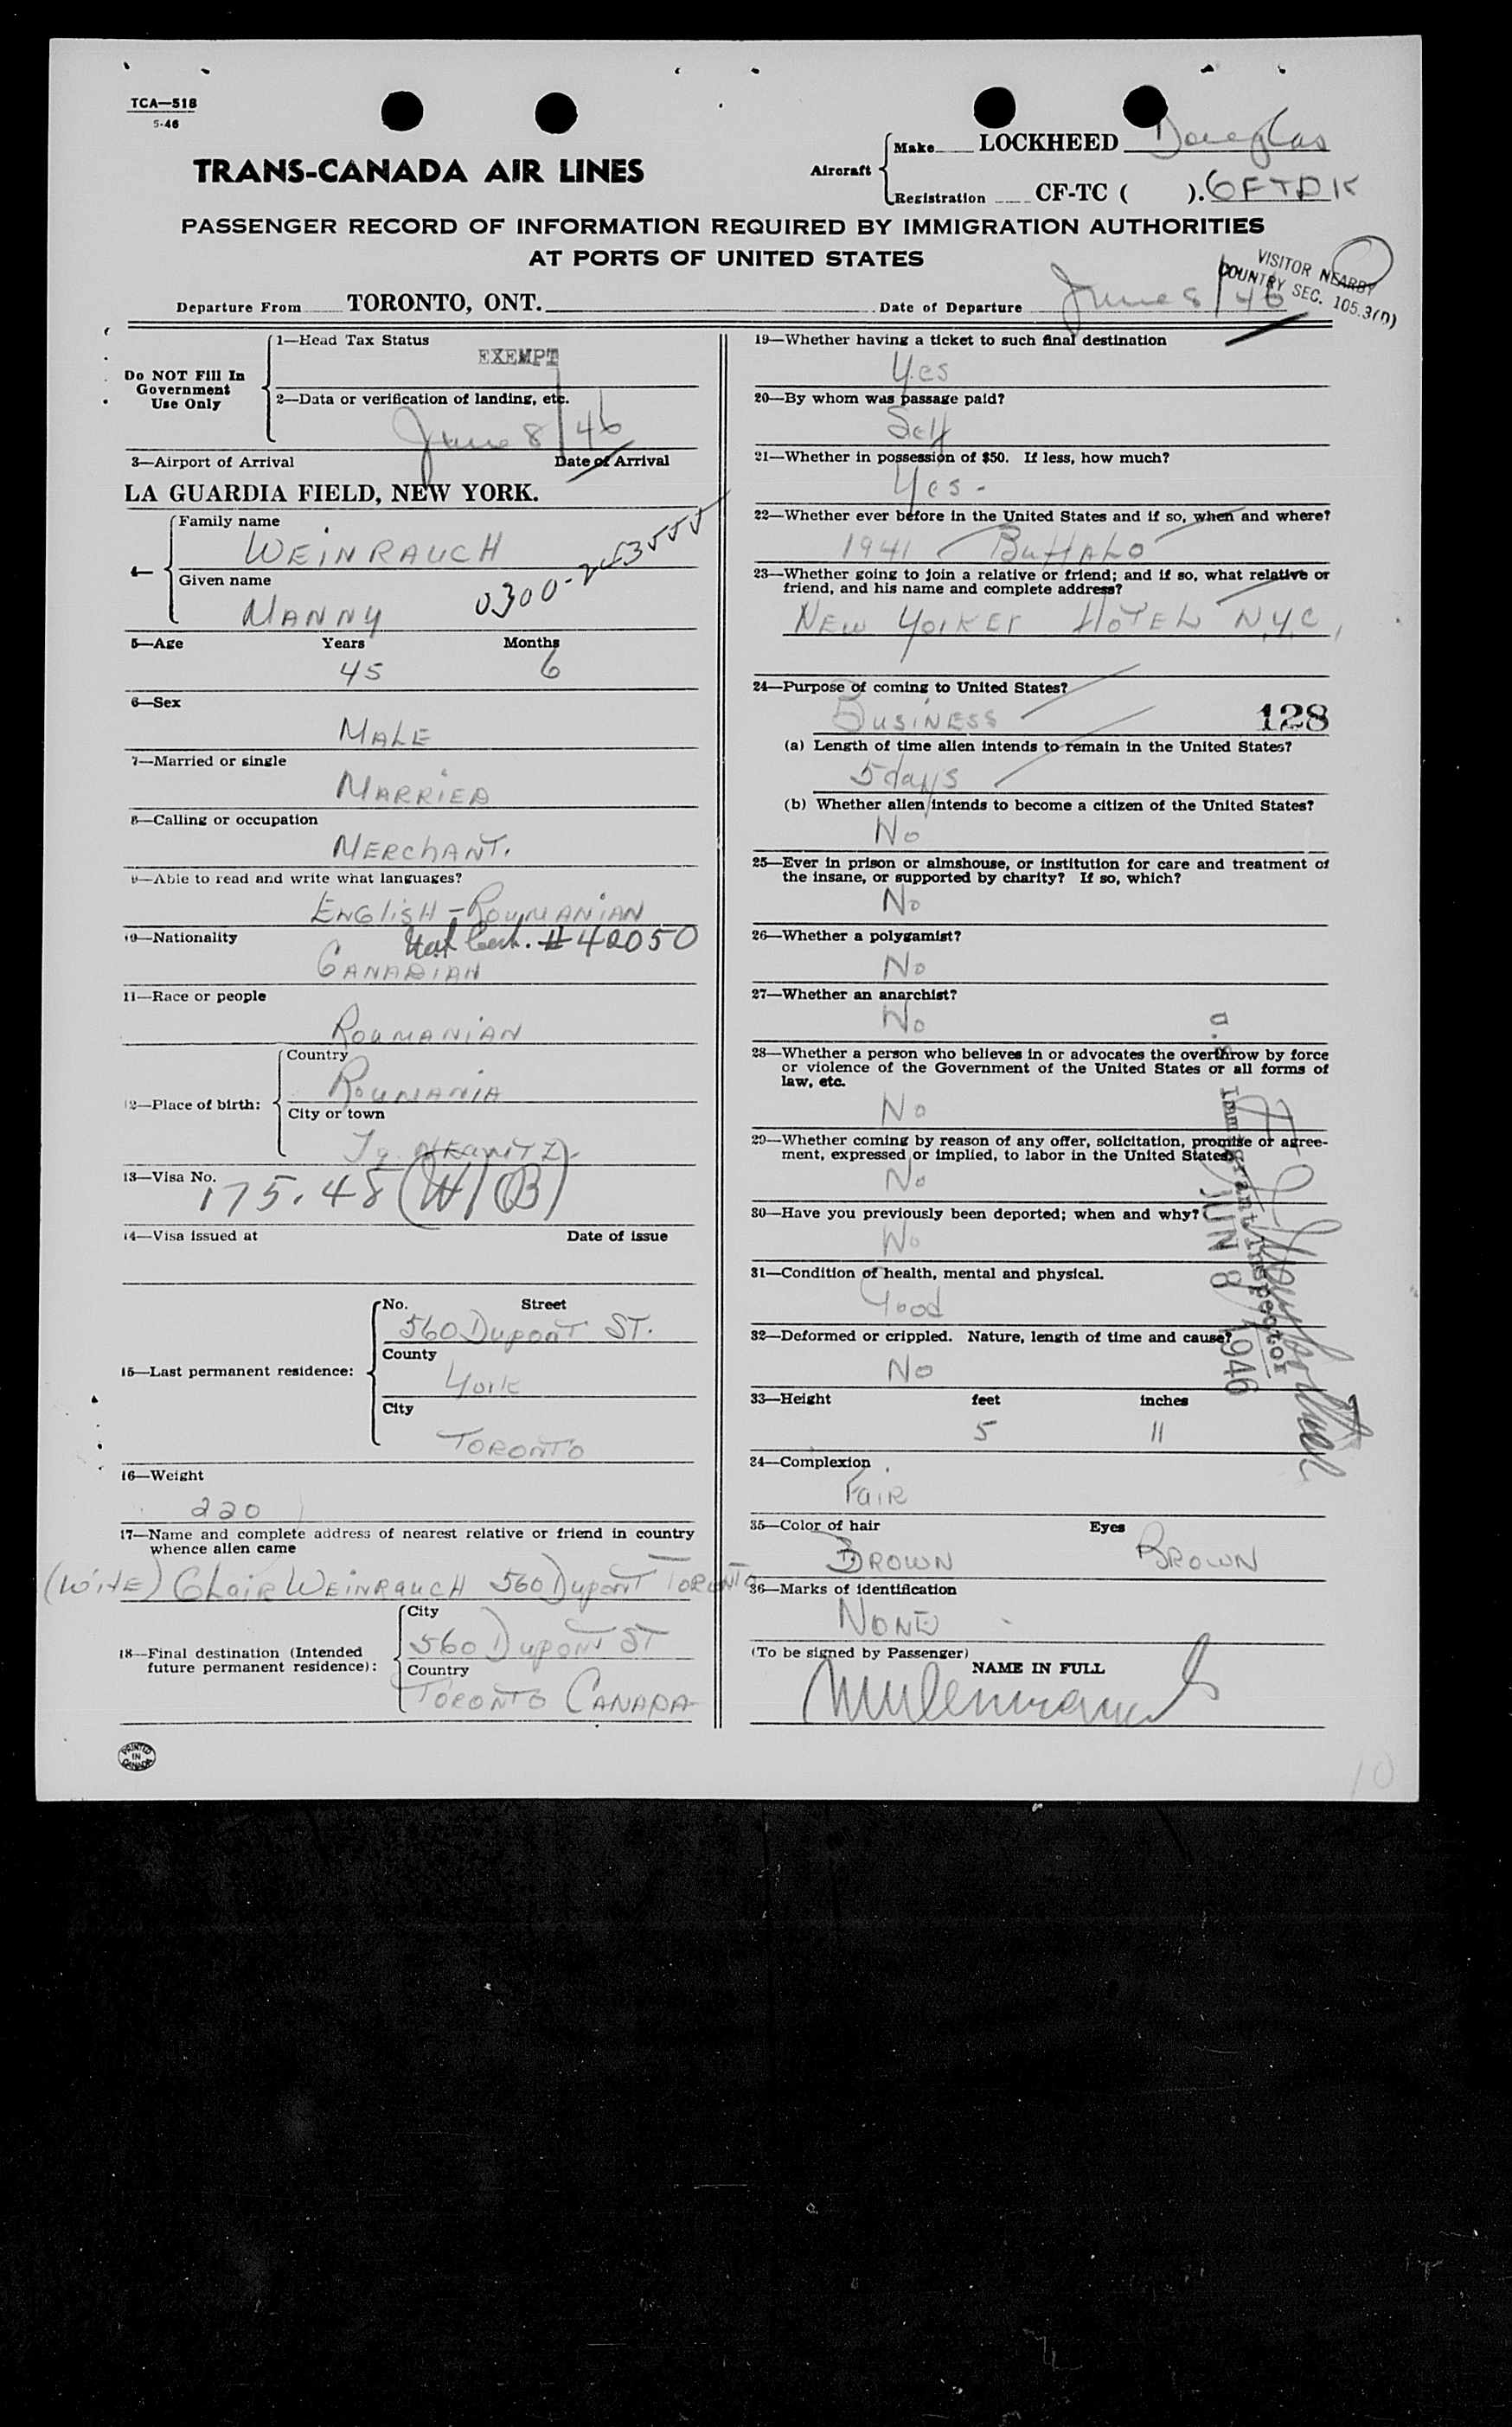 TCA—518
5-46
TRANS-CANADA AIR LINES
Aircraft
Make LOCKHEED Douglas
Registration CF-TC ( ). CFTDK
PASSENGER RECORD OF INFORMATION REQUIRED BY IMMIGRATION AUTHORITIES
AT PORTS OF UNITED STATES
VISITOR NEARBY
COUNTRY SEC. 105.3(D)
Departure From TORONTO, ONT. Date of Departure June 8/46
Do NOT Fill In
Government
Use Only
1—Head Tax Status
EXEMPT
2—Data or verification of landing, etc.
June 8/46
3—Airport of Arrival Date of Arrival
LA GUARDIA FIELD, NEW YORK.
4—
Family name
WEINRAUCH
Given name
MANNY
0300-243555
5—Age Years Months
45 6
6—Sex
MALE
7—Married or single
MARRIED
8—Calling or occupation
MERCHANT.
9—Able to read and write what languages?
ENGLISH-ROUMANIAN
10—Nationality
Cert. #42050
CANADIAN
11—Race or people
ROUMANIAN
12—Place of birth:
Country
ROUMANIA
City or town
Tg.
13—Visa No.
175.48 (W/B)
14—Visa issued at Date of issue
15—Last permanent residence:
No. Street
560 DUPONT ST.
County
York
City
TORONTO
16—Weight
220
17—Name and complete address of nearest relative or friend in country
whence alien came
(WIFE) CLAIR WEINRAUCH 560 DUPONT TORONTO
18—Final destination (Intended
future permanent residence):
City
560 DUPONT ST
Country
TORONTO CANADA
PRINTED
IN
CANADA
19—Whether having a ticket to such final destination
Yes
20—By whom was passage paid?
Self
21—Whether in possession of $50. If less, how much?
Yes-
22—Whether ever before in the United States and if so, when and where?
1941 BUFFALO
23—Whether going to join a relative or friend; and if so, what relative or
friend, and his name and complete address?
NEW YORKER HOTEL N.Y.C.
24—Purpose of coming to United States?
BUSINESS
128
(a) Length of time alien intends to remain in the United States?
5 days
(b) Whether alien intends to become a citizen of the United States?
No
25—Ever in prison or almshouse, or institution for care and treatment of
the insane, or supported by charity? If so, which?
No
26—Whether a polygamist?
No
27—Whether an anarchist?
No
28—Whether a person who believes in or advocates the overthrow by force
or violence of the Government of the United States or all forms of
law, etc.
No
29—Whether coming by reason of any offer, solicitation, promise or agree-
ment, expressed or implied, to labor in the United States?
No
30—Have you previously been deported; when and why?
No
31—Condition of health, mental and physical.
Good
32—Deformed or crippled. Nature, length of time and cause?
No
U.S. Immigrant Inspector
JUN 8 1946
33—Height feet inches
5 11
34—Complexion
FAIR
35—Color of hair Eyes
BROWN BROWN
36—Marks of identification
NONE
(To be signed by Passenger)
NAME IN FULL
MWeinrauch
10